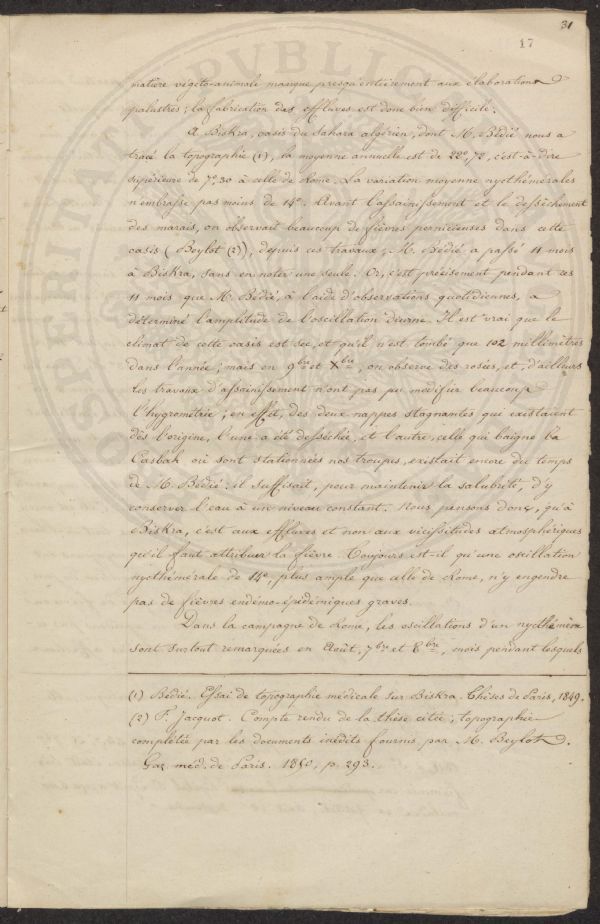 31
17
matière végéto-animale manque presqu'entièrement aux élaborations
palustres; la fabrication des effluves est donc bien difficile.
A Biskra, oasis du Sahara algérien, dont M. Bédié nous a
tracé la topographie (1), la moyenne annuelle est de 22°,72, c'est-à-dire
supérieure de 7°,30 à celle de Rome. La variation moyenne nycthémérale
n'embrasse pas moins de 14°. Avant l'assainissement et le dessèchement
des marais, on observait beaucoup de fièvres pernicieuses dans cette
oasis (Beylot (2)); depuis ces travaux, M. Bédié a passé 11 mois
à Biskra, sans en noter une seule. Or, c'est précisément pendant ces
11 mois que M. Bédié, à l'aide d'observations quotidiennes, a
déterminé l'amplitude de l'oscillation diurne. Il est vrai que le
climat de cette oasis est sec, et qu'il n'est tombé que 102 millimètres
dans l'année; mais en 9bre et Xbre, on observe des rosées, et, d'ailleurs
les travaux d'assainissement n'ont pas pu modifier beaucoup
l'hygrométrie; en effet, des deux nappes stagnantes qui existaient
dès l'origine, l'une a été desséchée, et l'autre, celle qui baigne la
Casbah où sont stationnées nos troupes, existait encore du temps
de M. Bédié: il suffisait, pour maintenir la salubrité, d'y
conserver l'eau à un niveau constant. Nous pensons donc, qu'à
Biskra, c'est aux effluves et non aux vicissitudes atmosphériques
qu'il faut attribuer la fièvre. Toujours est-il qu'une oscillation
nycthémérale de 14°, plus ample que celle de Rome, n'y engendre
pas de fièvres endémo-épidémiques graves.
Dans la campagne de Rome, les oscillations d'un nycthémère
sont surtout remarquées en Août, 7bre et 8bre, mois pendant lesquels
(1) Bédié. Essai de topographie médicale sur Biskra. Thèses de Paris, 1849.
(2) F. Jacquot. Compte rendu de la thèse citée; topographie
complétée par les documents inédits fournis par M. Beylot.
Gaz. méd. de Paris. 1850, p. 293.